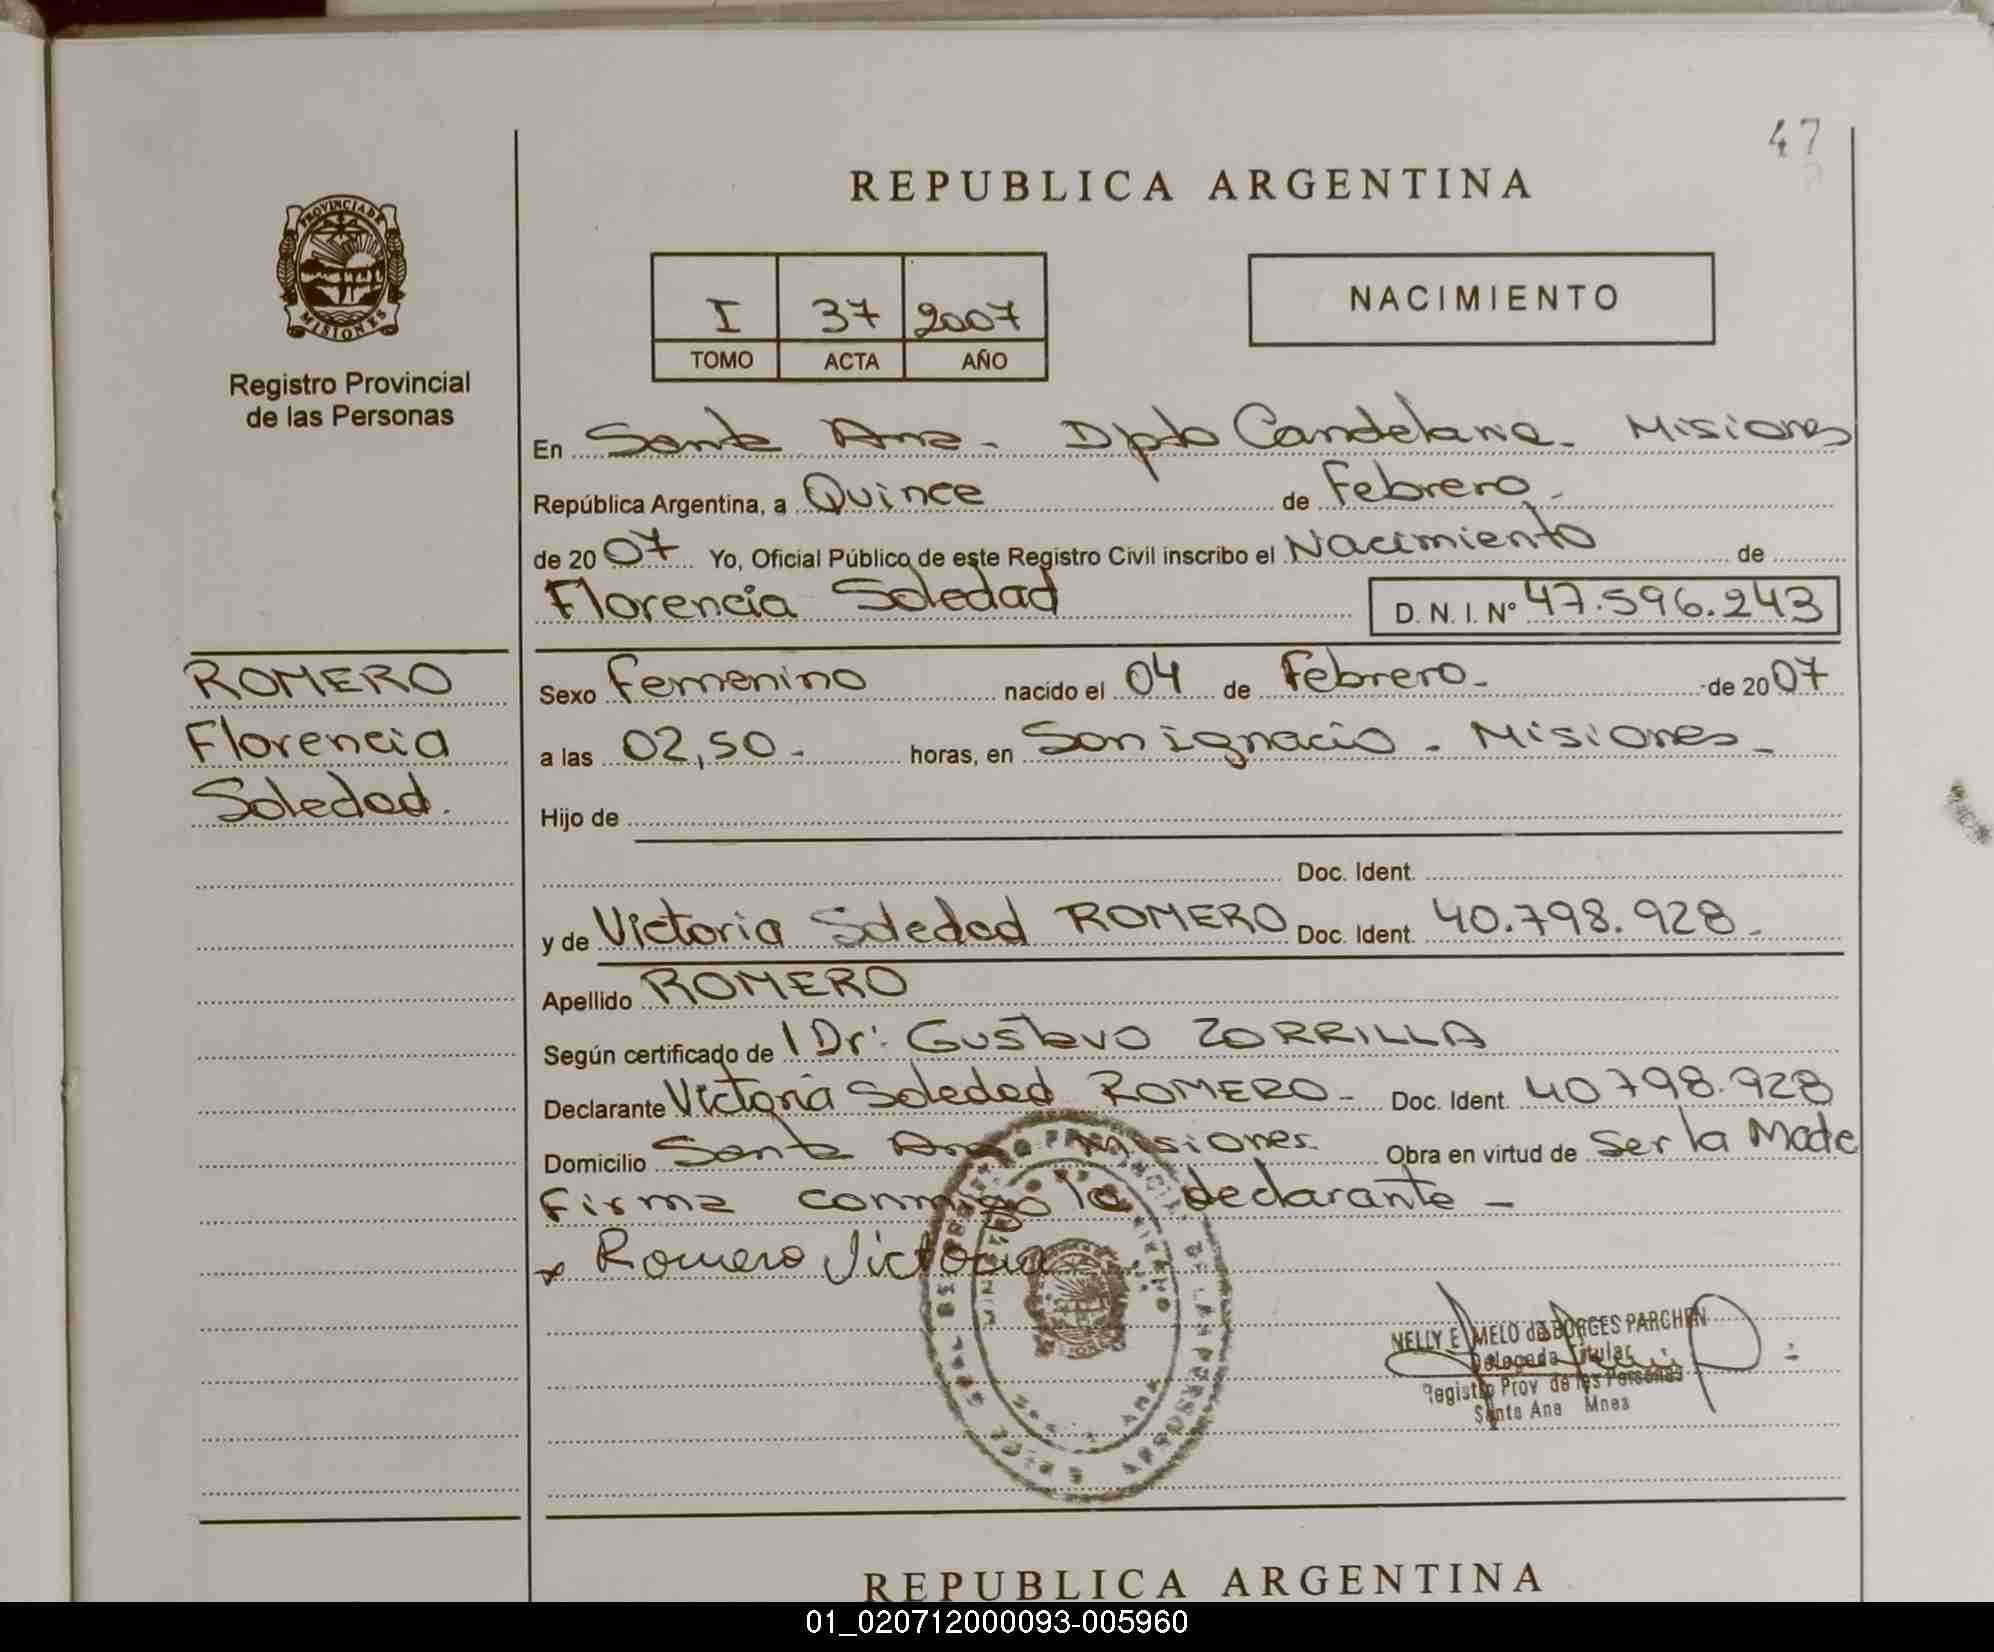 47
REPUBLICA ARGENTINA
PROVINCIA DE
MISIONES
Registro Provincial
de las Personas
I 37 2007
TOMO ACTA AÑO
NACIMIENTO
En Santa Ana - Dpto Candelaria - Misiones
República Argentina, a Quince de Febrero -
de 2007 Yo, Oficial Público de este Registro Civil inscribo el Nacimiento de
Florencia Soledad D. N. I. Nº 47.596.243
ROMERO
Florencia
Soledad.
Sexo Femenino nacido el 04 de Febrero - de 2007
a las 02,50 - horas, en San Ignacio - Misiones -
Hijo de
Doc. Ident.
y de Victoria Soledad ROMERO Doc. Ident. 40.798.928 -
Apellido ROMERO
Según certificado de Dr: Gustavo ZORRILLA
Declarante Victoria Soledad ROMERO - Doc. Ident. 40 798.928
Domicilio Santa Ana Misiones. Obra en virtud de Ser la Madre
Firma conmigo la declarante -
x Romero Victoria
NELLY E. MELO de BORGES PARCHEN
Delegada Titular
Registro Prov de las Personas
Santa Ana Mnes
REPUBLICA ARGENTINA
01_020712000093-005960